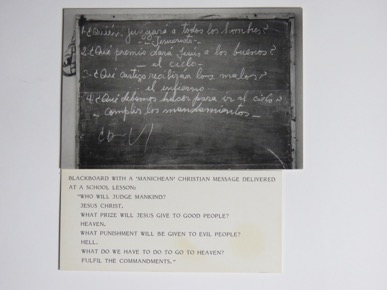 1-¿Quién juzgará a todos los hombres?
- Jesucristo -
2-¿Qué premio dará Jesús a los buenos?
- el cielo -
3-¿Qué castigo recibirán los malos?
el infierno
4-¿Qué debemos hacer para ir al cielo?
- cumplir los mandamientos -
BLACKBOARD WITH A 'MANICHEAN' CHRISTIAN MESSAGE DELIVERED
AT A SCHOOL LESSON:
"WHO WILL JUDGE MANKIND?
JESUS CHRIST.
WHAT PRIZE WILL JESUS GIVE TO GOOD PEOPLE?
HEAVEN.
WHAT PUNISHMENT WILL BE GIVEN TO EVIL PEOPLE?
HELL.
WHAT DO WE HAVE TO DO TO GO TO HEAVEN?
FULFIL THE COMMANDMENTS."